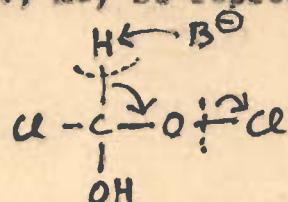 H B⊖
Cl - C - O - Cl
OH